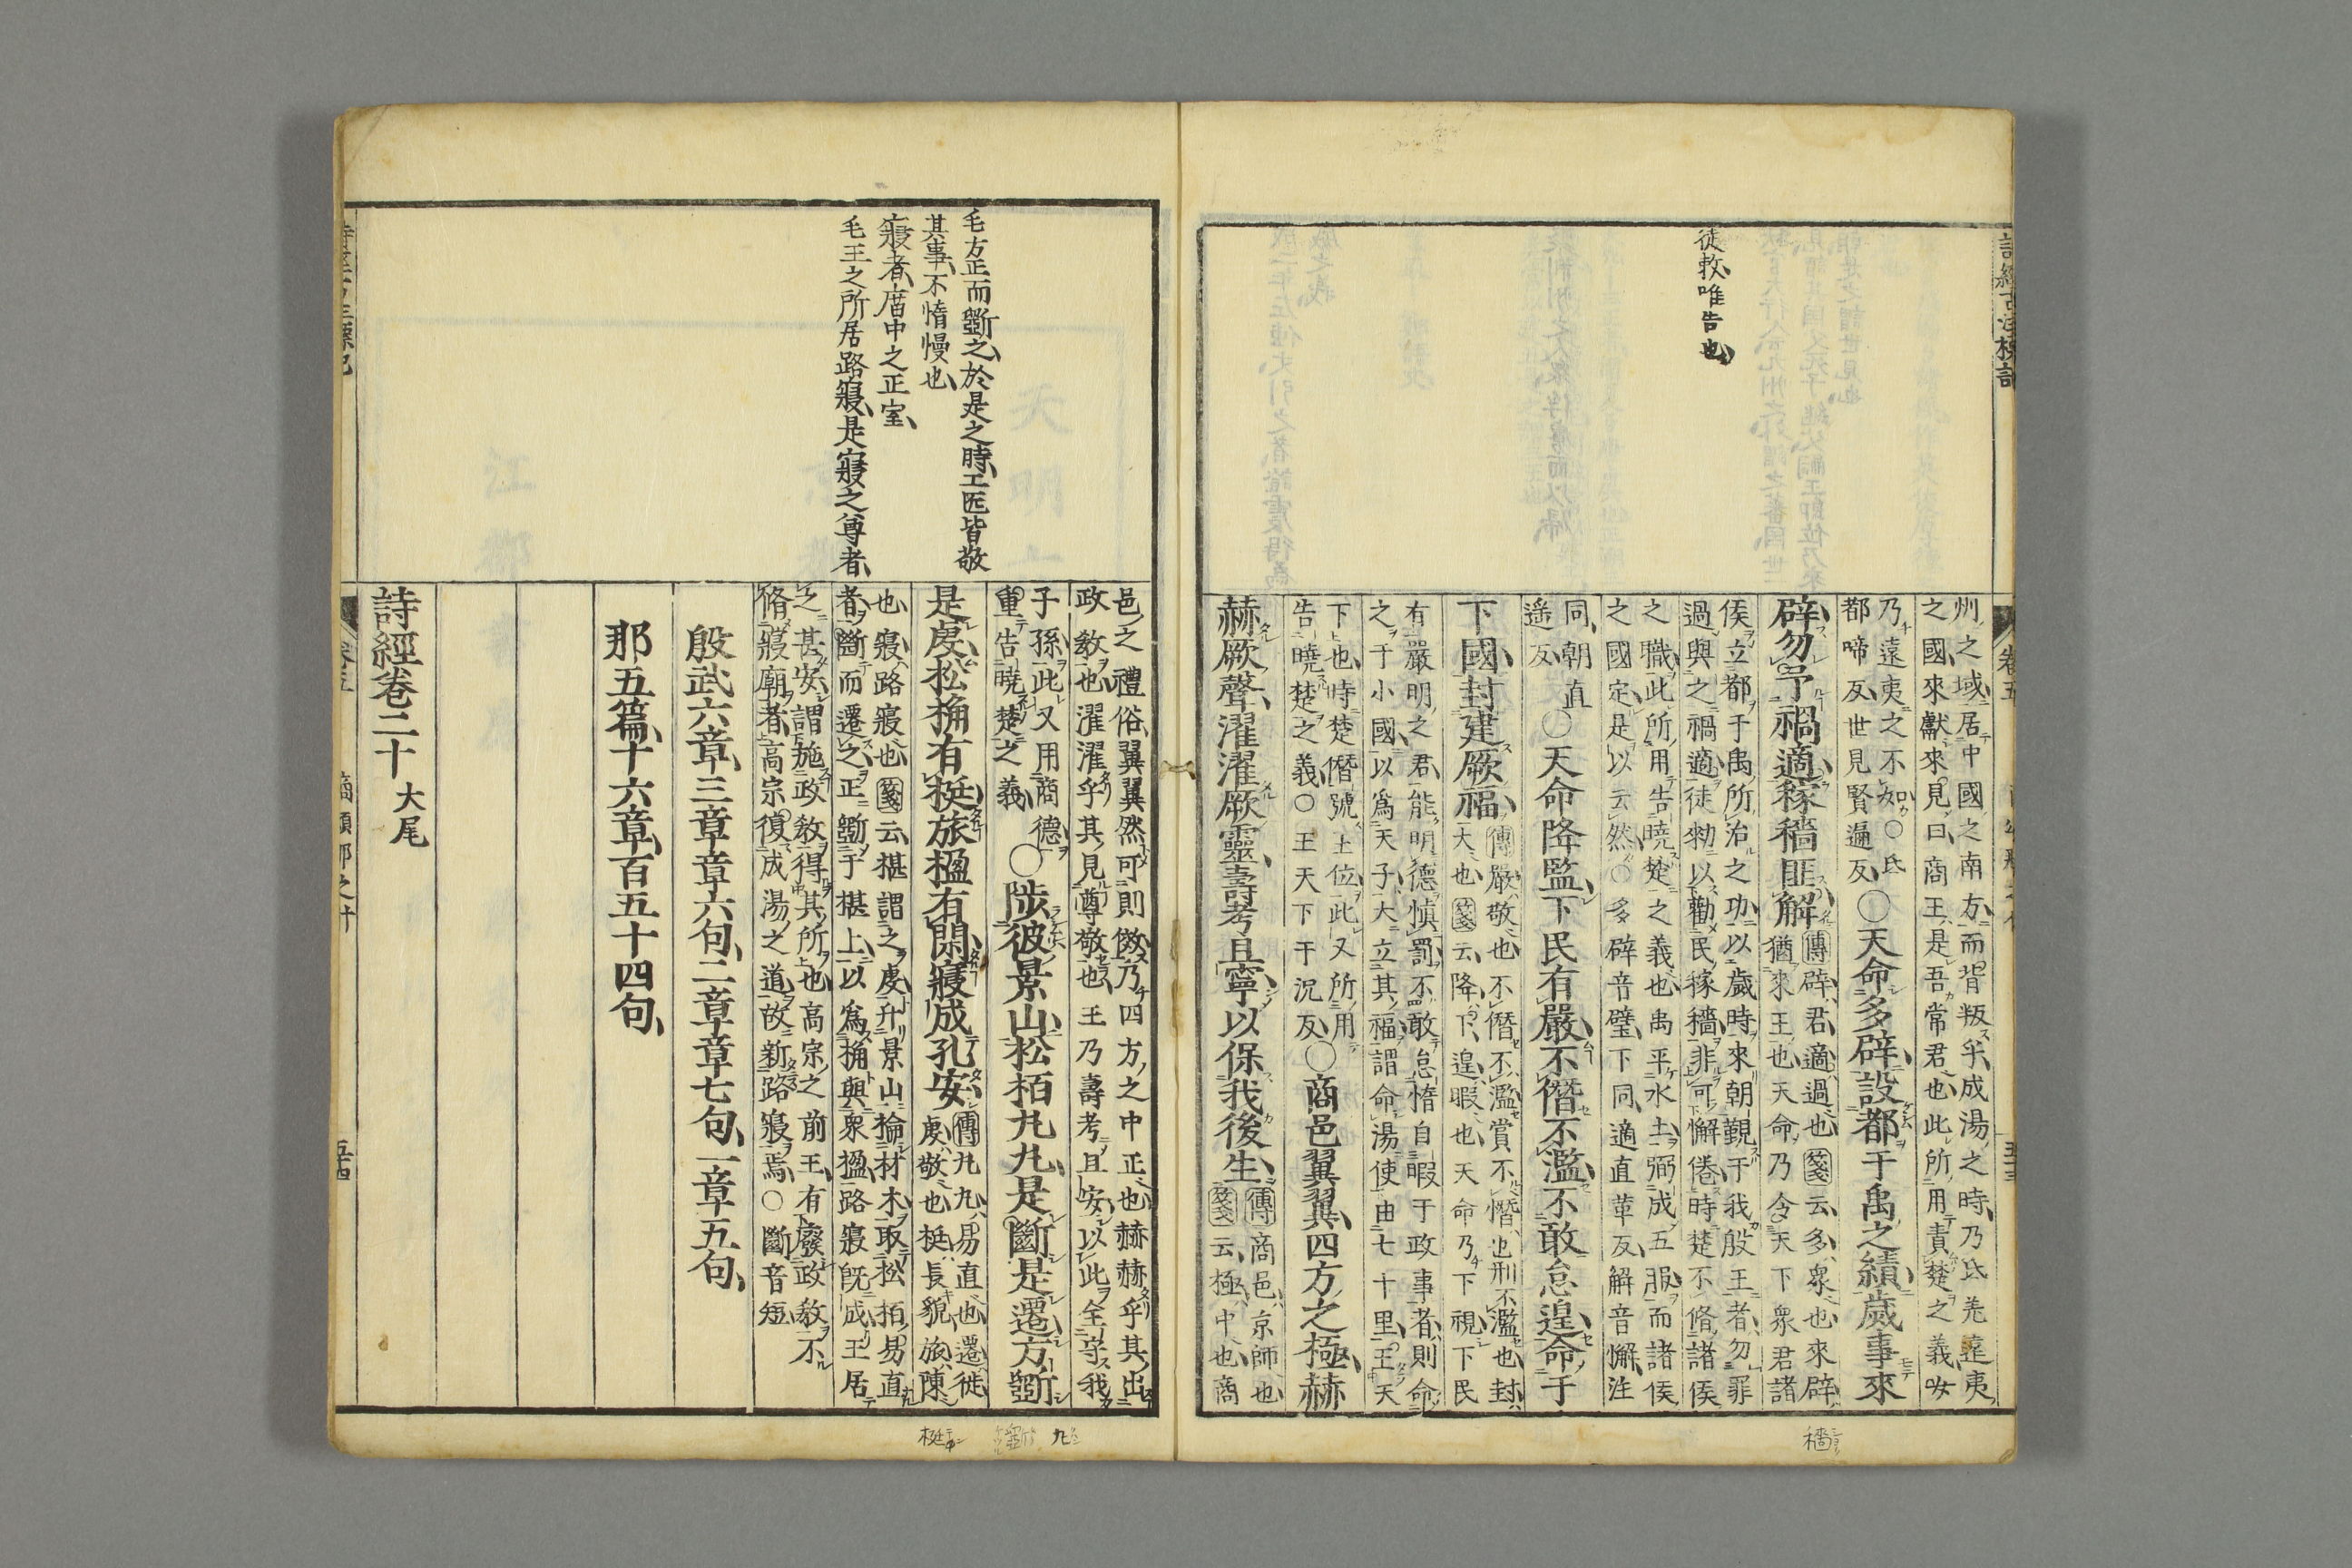 詩經古注標記
卷五
五十三
徒敕唯告也
州之域居中國之南方而背叛乎成湯之時乃氐羌遠夷
之國來獻來見曰商王是吾常君也此所用責楚之義女
乃遠夷之不如○氐
都啼反世見賢遍反
○天命多辟設都于禹之績歲事來
辟勿予禍適稼穡匪解
傳辟君適過也箋云多衆也來辟
猶來王也天命乃令天下衆君諸
侯立都于禹所治之功以歲時來朝覲于我殷王者勿罪
過與之禍適徒勑以勸民稼穡非可懈倦時楚不脩諸侯
之職此所用告曉楚之義也禹平水土弼成五服而諸侯
之國定是以云然○多辟音璧下同適直革反解音懈注
同朝直
遙反
○天命降監下民有嚴不僭不濫不敢怠遑命于
下國封建厥福
傳嚴敬也不僭不濫賞不僭也刑不濫也封
大也箋云降下遑暇也天命乃下視下民
有嚴明之君能明德慎罰不敢怠惰自暇于政事者則命
之于小國以爲天子大立其福謂命湯使由七十里王天
下也時楚僭號土位此又所用
告曉楚之義○王天下于況反
○商邑翼翼四方之極赫
赫厥聲濯濯厥靈壽考且寧以保我後生
傳商邑京師也
箋云極中也商
穡
毛方正而斲之於是之時工匠皆敬
其事不惰慢也
寢者廇中之正室
毛王之所居路寢是寢之尊者
邑之禮俗翼翼然可則傚乃四方之中正也赫赫乎其出
政教也濯濯乎其見尊敬也王乃壽考且安以此全守我
子孫此又用商德
重告曉楚之義
○陟彼景山松栢丸丸是斷是遷方斲
是虔松桷有梴旅楹有閑寢成孔安
傳丸丸易直也遷徙
虔敬也梴長貌旅陳
也寢路寢也箋云椹謂之虔升景山掄材木取松栢易直
者斷而遷之正斲于椹上以爲桷與衆楹路寢既成王居
之甚安謂施政教得其所也高宗之前王有廢政教不
脩寢廟者高宗復成湯之道故新路寢焉○斷音短
殷武六章三章章六句二章章七句一章五句
那五篇十六章百五十四句
詩經卷二十 大尾
卷五
商頌那之什
五十四
丸
斲
梴